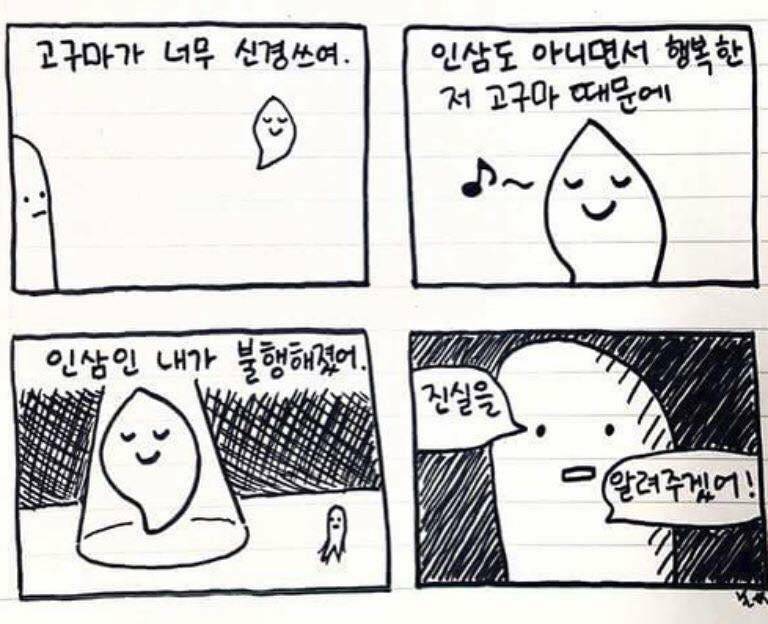 고구마가 너무 신경쓰여.
인삼도 아니면서 행복한
저 고구마 때문에
인삼인 내가 불행해졌어.
진실을
알려주겠어!